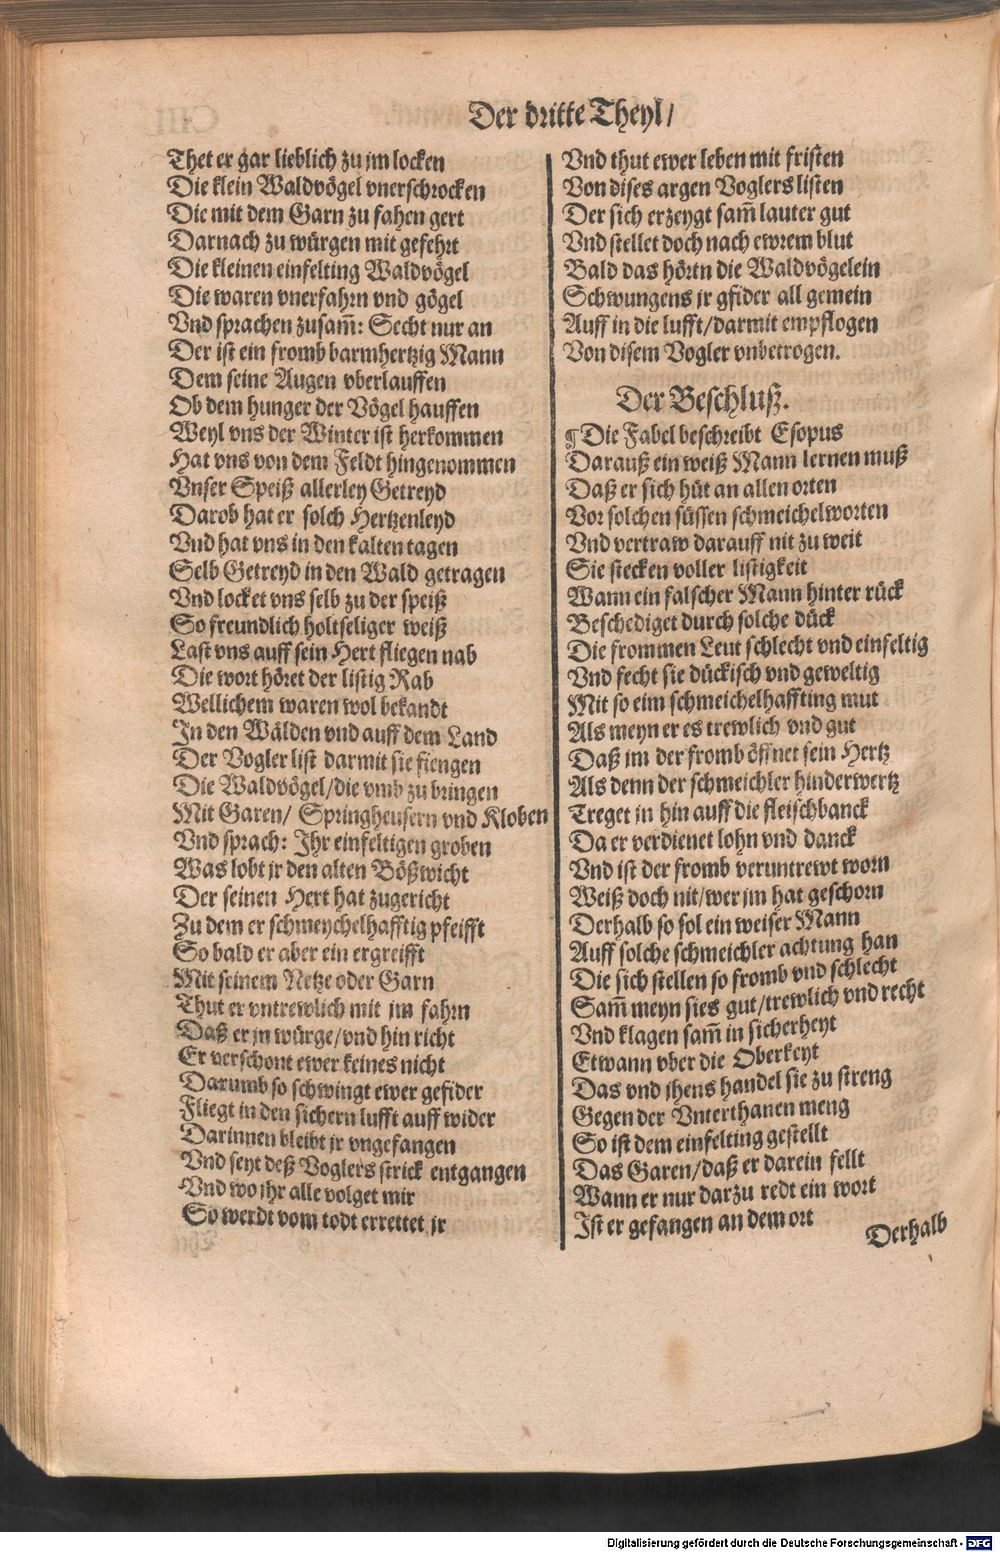 Der dritte Theyl/
Thet er gar lieblich zu jm locken
Die klein Waldvögel vnerschrocken
Die mit dem Garn zu fahen gert
Darnach zu würgen mit gefehrt
Die kleinen einfelting Waldvögel
Die waren vnerfahrn vnd gögel
Vnd sprachen zusam̃: Secht nur an
Der ist ein fromb barmhertzig Mann
Dem seine Augen vberlauffen
Ob dem hunger der Vögel hauffen
Weyl vns der Winter ist herkommen
Hat vns von dem Feldt hingenommen
Vnser Speiß allerley Getreyd
Darob hat er solch Hertzenleyd
Vnd hat vns in den kalten tagen
Selb Getreyd in den Wald getragen
Vnd locket vns selb zu der speiß
So freundlich holtseliger weiß
Last vns auff sein Hert fliegen nab
Die wort höret der listig Rab
Wellichem waren wol bekandt
In den Wälden vnd auff dem Land
Der Vogler list darmit sie fiengen
Die Waldvögel/die vmb zu bringen
Mit Garen/ Springheusern vnd Kloben
Vnd sprach: Ihr einfeltigen groben
Was lobt jr den alten Bößwicht
Der seinen Hert hat zugericht
Zu dem er schmeychelhafftig pfeifft
So bald er aber ein ergreifft
Mit seinem Netze oder Garn
Thut er vntrewlich mit jm fahrn
Daß er jn würge/vnd hin richt
Er verschont ewer keines nicht
Darumb so schwingt ewer gefider
Fliegt in den sichern lufft auff wider
Darinnen bleibt jr vngefangen
Vnd seyt deß Voglers strick entgangen
Vnd wo jhr alle volget mir
So werdt vom todt errettet jr
Vnd thut ewer leben mit fristen
Von dises argen Voglers listen
Der sich erzeygt sam̃ lauter gut
Vnd stellet doch nach ewrem blut
Bald das hörtn die Waldvögelein
Schwungens jr gfider all gemein
Auff in die lufft/darmit empflogen
Von disem Vogler vnbetrogen.
Der Beschluß.
¶ Die Fabel beschreibt Esopus
Darauß ein weiß Mann lernen muß
Daß er sich hüt an allen orten
Vor solchen süssen schmeichelworten
Vnd vertraw darauff nit zu weit
Sie stecken voller listigkeit
Wann ein falscher Mann hinter rück
Beschediget durch solche dück
Die frommen Leut schlecht vnd einfeltig
Vnd fecht sie dückisch vnd geweltig
Mit so eim schmeichelhaffting mut
Als meyn er es trewlich vnd gut
Daß jm der fromb öffnet sein Hertz
Als denn der schmeichler hinderwertz
Treget jn hin auff die fleischbanck
Da er verdienet lohn vnd danck
Vnd ist der fromb veruntrewt worn
Weiß doch nit/wer jm hat geschorn
Derhalb so sol ein weiser Mann
Auff solche schmeichler achtung han
Die sich stellen so fromb vnd schlecht
Sam̃ meyn sies gut/trewlich vnd recht
Vnd klagen sam̃ in sicherheyt
Etwann vber die Oberkeyt
Das vnd jhens handel sie zu streng
Gegen der Vnterthanen meng
So ist dem einfelting gestellt
Das Garen/daß er darein fellt
Wann er nur darzu redt ein wort
Ist er gefangen an dem ort
Derhalb
Digitalisierung gefördert durch die Deutsche Forschungsgemeinschaft - DFG